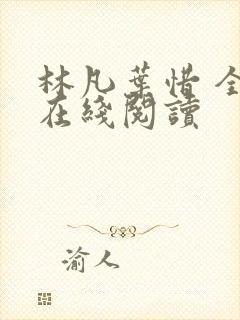 林凡葉惜 全
在綫閱讀
渝人